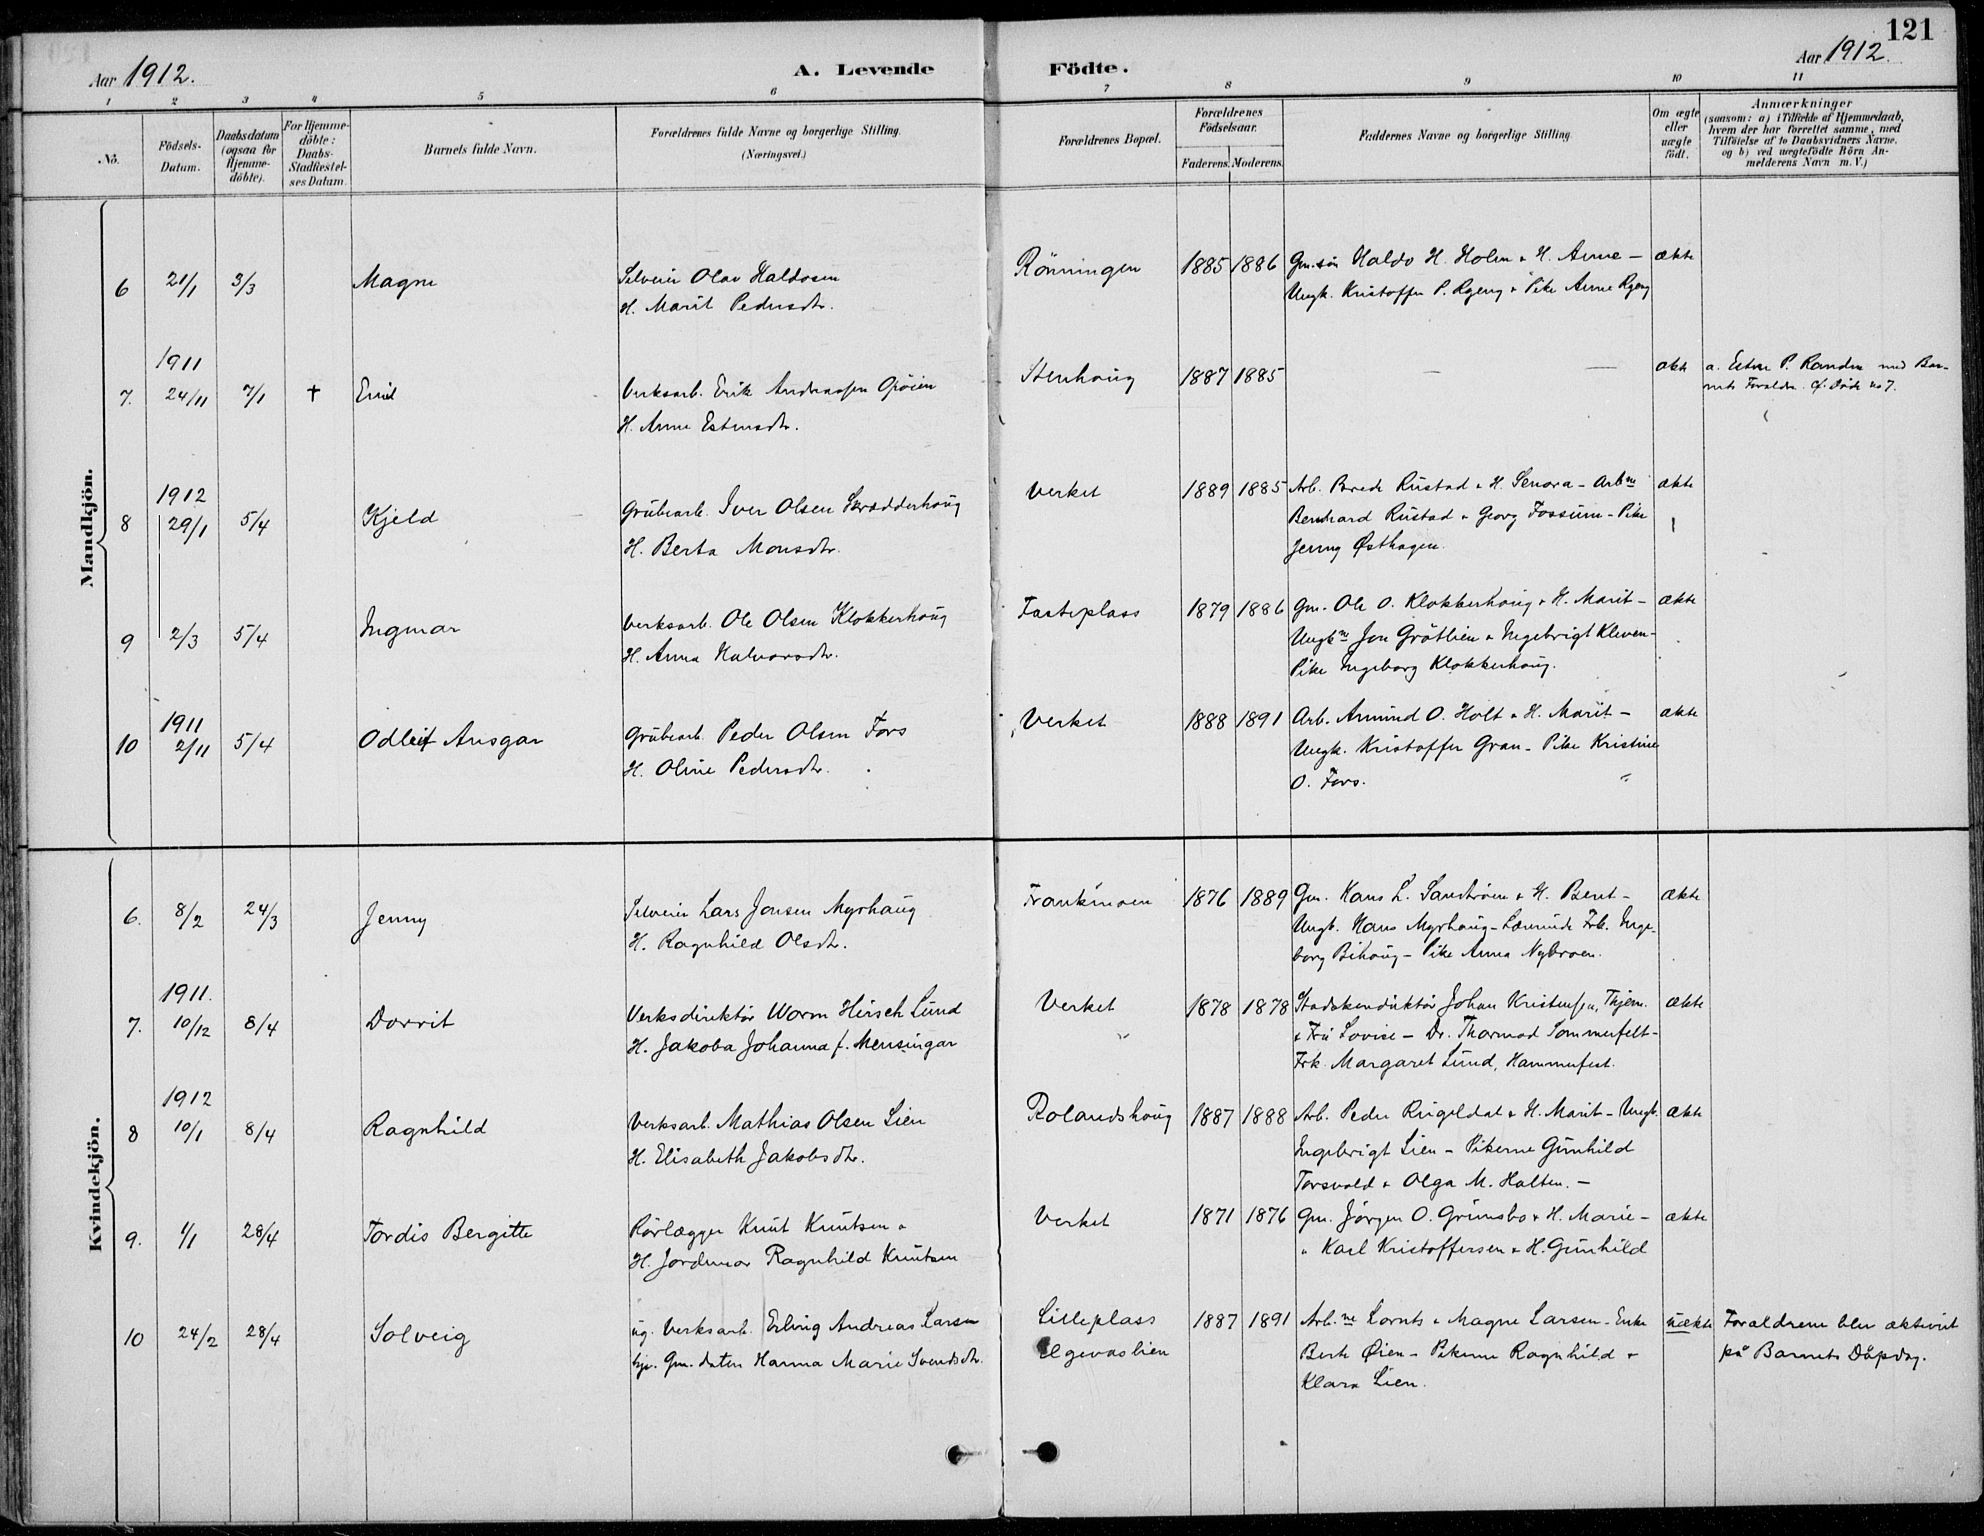 121
Aar 1912.
A. Levende
Födte.
Aar 1912.
1 2 3 4 5 6 7 8 9 10 11
No.
Födsels-
Datum.
Daabsdatum
(ogsaa for
Hjemme-
döbte).
For Hjemme-
döbte:
Daabs-
Stadfæstel-
ses Datum.
Barnets fulde Navn.
Forældrenes fulde Navne og borgerlige Stilling.
(Næringsvei.)
Forældrenes Bopæl.
Forældrenes
Födselsaar.
Faderens. Moderens.
Faddernes Navne og borgerlige Stilling.
Om ægte
eller
uægte
födt.
Anmærkninger
(saasom: a) i Tilfælde af Hjemmedaab,
hvem der har forrettet samme, med
Tilföielse af to Daabsvidners Navne.
og b) ved uægtefödte Börn An-
melderens Navn m. V.)
Mandkjön.
6 21/1 3/3 Magne
Selveier Olav Haldosen
H. Marit Pedersdtr.
Rönningen 1885 1886
Gm. Haldo H. Holm & H. Anne –
Ungk. Kristoffer P. & Pike Anne
ækte
1911
7. 24/11 7/1 † Emil
Verksarb. Erik Andreassen
H. Anne Estensdtr.
Stenhoug 1887 1885 — —
ækte
a. Esten P. Randen med Bar-
nets Forældre. cf. Döde no 7.
1912
8 29/1 5/4 Kjeld
Grubearb. Iver Olsen Skrædderhoug
H. Berta Monsdtr.
Verket 1889 1885
Arb. Brede Rustad & H. Senora – Arbne
Bernhard Rustad & Georg Fossum – Pike
Jenny Østhagen.
ækte
9 2/3 5/4 Ingmar
Verksarb. Ole Olsen Klokkerhoug
H. Anna Halvorsdtr.
Fasteplass 1879 1886
Gm. Ole O. Klokkerhoug & H. Marit –
Ungkne Jon Grötlien & Ingebrigt Kleven –
Pike Ingeborg Klokkerhoug.
ækte
1911
10 2/11 5/4 Odleif Ansgar
Grubearb. Peder Olsen Fors
H. Oline Pedersdtr.
Verket 1888 1891
Arb. Amund O. Holt & H. Marit –
Ungk. Kristoffer Gran – Pike Kristine
O. Fors.
ækte
Kvindekjön.
6. 8/2 24/3 Jenny
Selveier Lars Jonsen Myrhaug
H. Ragnhild Olsdtr.
Frankmoen 1876 1889
Gm. Hans L. Sandtröen & H. Beret –
Ungk. Hans Myrhaug – Frk. Inge-
borg Bihoug – Pike Anna Nybroen.
ækte
1911.
7. 10/12 8/4 Dorrit
Verksdirektör Worm Hirsch Lund
H. Jakoba Johanna f. Mensingar
Verket 1878 1878
Stadskonduktör Johan Kristensen, Thjem.
& Fru Lovise – Dr. Thormod Sommerfelt –
Frk. Margaret Lund, Hammerfest.
ækte
1912
8 10/1 8/4 Ragnhild
Verksarb. Mathias Olsen Lien
H. Elisabeth Jakobsdtr.
Rolandshoug 1887 1888
Arb. Peder Rugeldal & H. Marit – Ungk.
Ingebrigt Lien – Pikerne Gunhild
Torsvold & Olga M. Holten. –
ækte
9. 1/1 28/4 Tordis Bergitte
Rörlægger Knut Knutsen &
H. Jordmor Ragnhild Knutsen
Verket 1871 1876
Gm. Jörgen O. Grimsbo & H. Marie –
" Karl Kristoffersen & H. Gunhild
ækte
10 24/2 28/4 Solveig
ug. Verksarb. Erling Andreas Larsen
Gm. daten Hanna Marie Svendsdtr.
Lilleplass
Elgevaslien
1887 1891
Arb.ne Lornts & Magne Larsen – Enke
Berte Øien – Pikerne Ragnhild &
Klara Lien.
uækte
Forældrene blev ektevict
på Barnets Dåpdag.